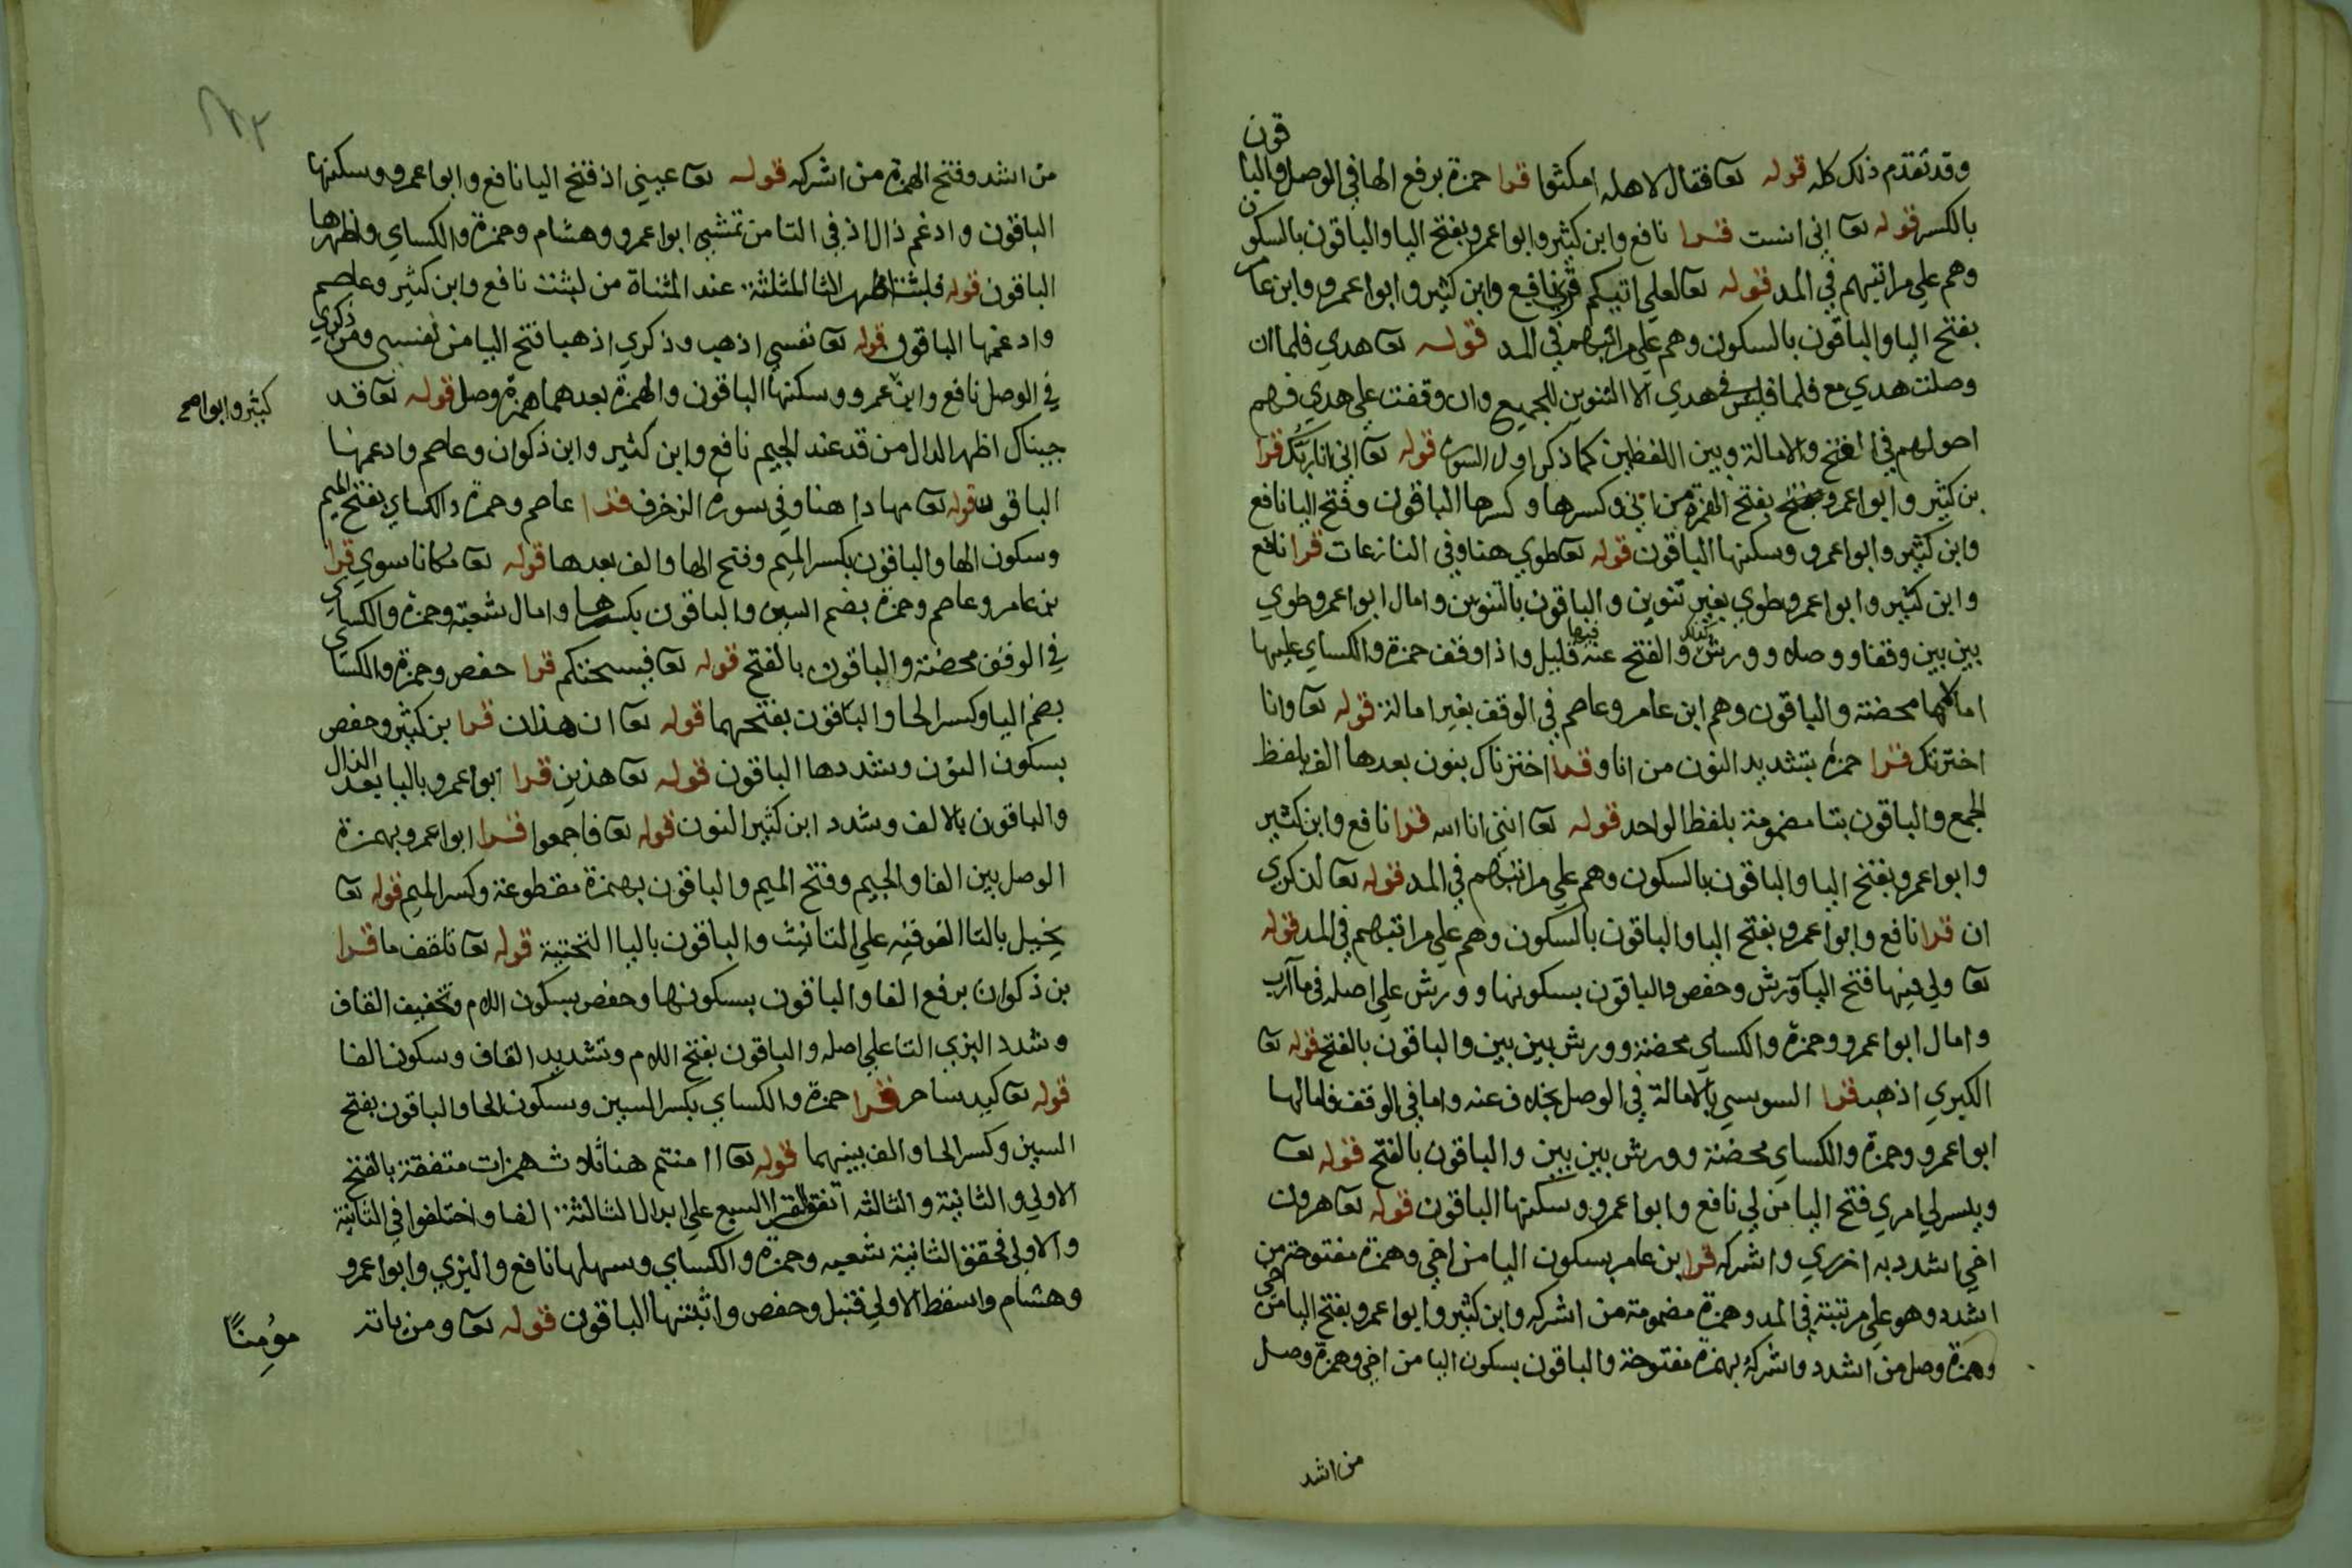 وقد تقدم ذلك كله قوله تعا فقال لاهله امكثوا قرا حمزة برفع الها في الوصل والباقون
بالكسر قوله تعا اني انست قرا نافع وابن كثير وابوا عمرو بفتح اليا والباقون بالسكون
وهم علي مراتبهم في المد قوله تعا لعلي اتيكم قرا نافع وابن كثير وابوا عمرو وابن عامر
بفتح اليا والباقون بالسكون وهم علي مراتبهم في المد قوله تعا هدي فلما ان
وصلت هدي مع فلما فليس في هدي الا التنوين للجميع وان وقفت علي هدي فهم
اصولهم في الفتح والامالة وبين اللفظين كما ذكر اول السورة قوله تعا اني انا ربك قرا
بن كثير وابوا عمرو بفتح الهمزة من اني وكسرها وكسرها الباقون وفتح اليا نافع
وابن كثير وابوا عمرو وسكنها الباقون قوله تعا طوي هنا وفي النازعات قرا نافع
وابن كثير وابوا عمرو طوي بغير تنوين والباقون بالتنوين وامال ابوا عمرو طوي
بين بين وقفا ووصلا وورش كذلك والفتح عنه فيها قليل واذا وقف حمزة والكساي عليها
امالاها محضة والباقون وهم ابن عامر وعاصم في الوقف بغير امالة قوله تعا وانا
اخترتك قرا حمزة بتشديد النون من انا وقرا اخترناك بنون بعدها الف بلفظ
الجمع والباقون بتا مضمومة بلفظ الواحد قوله تعا انني انا الله قرا نافع وابن كثير
وابوا عمرو بفتح اليا والباقون بالسكون وهم علي مراتبهم في المد قوله تعا لذكري
ان قرا نافع وابوا عمرو بفتح اليا والباقون بالسكون وهم علي مراتبهم في المد قوله
تعا ولي فيها فتح اليا ورش وحفص والباقون بسكونها وورش علي اصله في مآرب
وامال ابوا عمرو وحمزة والكساي محضة وورش بين بين والباقون بالفتح قوله تعا
الكبري اذهب قرا السوسي بالامالة في الوصل بخلاف عنه واما في الوقف فامالها
ابوا عمرو وحمزة والكساي محضة وورش بين بين والباقون بالفتح قوله تعا
ويسر لي امري فتح اليا من لي نافع وابوا عمرو وسكنها الباقون قوله تعا هرون
اخي اشدد به ازري واشركه قرا بن عامر بسكون اليا من اخي وهمزة مفتوحة من
اشدد وهو علي مرتبته في المد وهمزة مضمومة من اشركه وابن كثير وابوا عمرو بفتح اليا من اخي
وهمزة وصل من اشدد واشركه بهمزة مفتوحة والباقون بسكون اليا من اخي وهمزة وصل
من اشد
من اشد وفتح الهمزة من اشركه قوله تعا عيني اذ فتح اليا نافع وابوا عمرو وسكنها
الباقون وادغم ذال اذ في التا من تمشي ابوا عمرو وهشام وحمزة والكساي واظهرها
الباقون قوله فلبثت اظهر الثا المثلثة عند المثناة من لبثت نافع وابن كثير وعاصم
وادغمها الباقون قوله تعا نفسي اذهب وذكري اذهبا فتح اليا من نفسي ومن ذكري
في الوصل نافع وابن عمرو وسكنها الباقون والهمزة بعدهما همزة وصل قوله تعا قد
كثير وابوا صح
جيناك اظهر الدال من قد عند الجيم نافع وابن كثير وابن ذكوان وعاصم وادغمها
الباقون قوله تعا مهادا هنا وفي سورة الزخرف قرا عاصم وحمزة والكساي بفتح الميم
وسكون الها والباقون بكسر الميم وفتح الها والف بعدها قوله تعا مكانا سوي قرا
بن عامر وعاصم وحمزة بضم السين والباقون بكسرها وامال شعبة وحمزة والكساي
في الوقف محضة والباقون بالفتح قوله تعا فيسحتكم قرا حفص وحمزة والكساي
بضم اليا وكسر الحا والباقون بفتحهما قوله تعا ان هذان قرا بن كثير وحفص
بسكون النون وشددها الباقون قوله تعا هذين قرا ابوا عمرو باليا بعد الذال
والباقون بالالف وشدد ابن كثير النون قوله تعا فاجمعوا قرا ابوا عمرو بهمزة
الوصل بين الفا والجيم وفتح الميم والباقون بهمزة مقطوعة وكسر الميم قوله تعا
يخيل بالتا الفوقيه علي التانيث والباقون باليا التحتية قوله تعا تلقف ما قرا
بن ذكوان برفع الفا والباقون بسكونها وحفص بسكون اللام وتخفيف القاف
وشدد البزي التا علي اصله والباقون بفتح اللام وتشديد القاف وسكون الفا
قوله تعا كيد ساحر قرا حمزة والكساي بكسر السين وسكون الحا والباقون بفتح
السين وكسر الحا والف بينهما قوله تعا اامنتم هنا ثلاث همزات متفقة بالفتح
الاولي والثانية والثالثه اتفق القرا السبع علي ابدال الثالثة الفا واختلفوا في الثانية
والاولي فحقق الثانية شعبه وحمزة والكساي وسهلها نافع والبزي وابوا عمرو
وهشام واسقط الاولي قنبل وحفص واثبتها الباقون قوله تعا ومن ياته
مؤمنًا